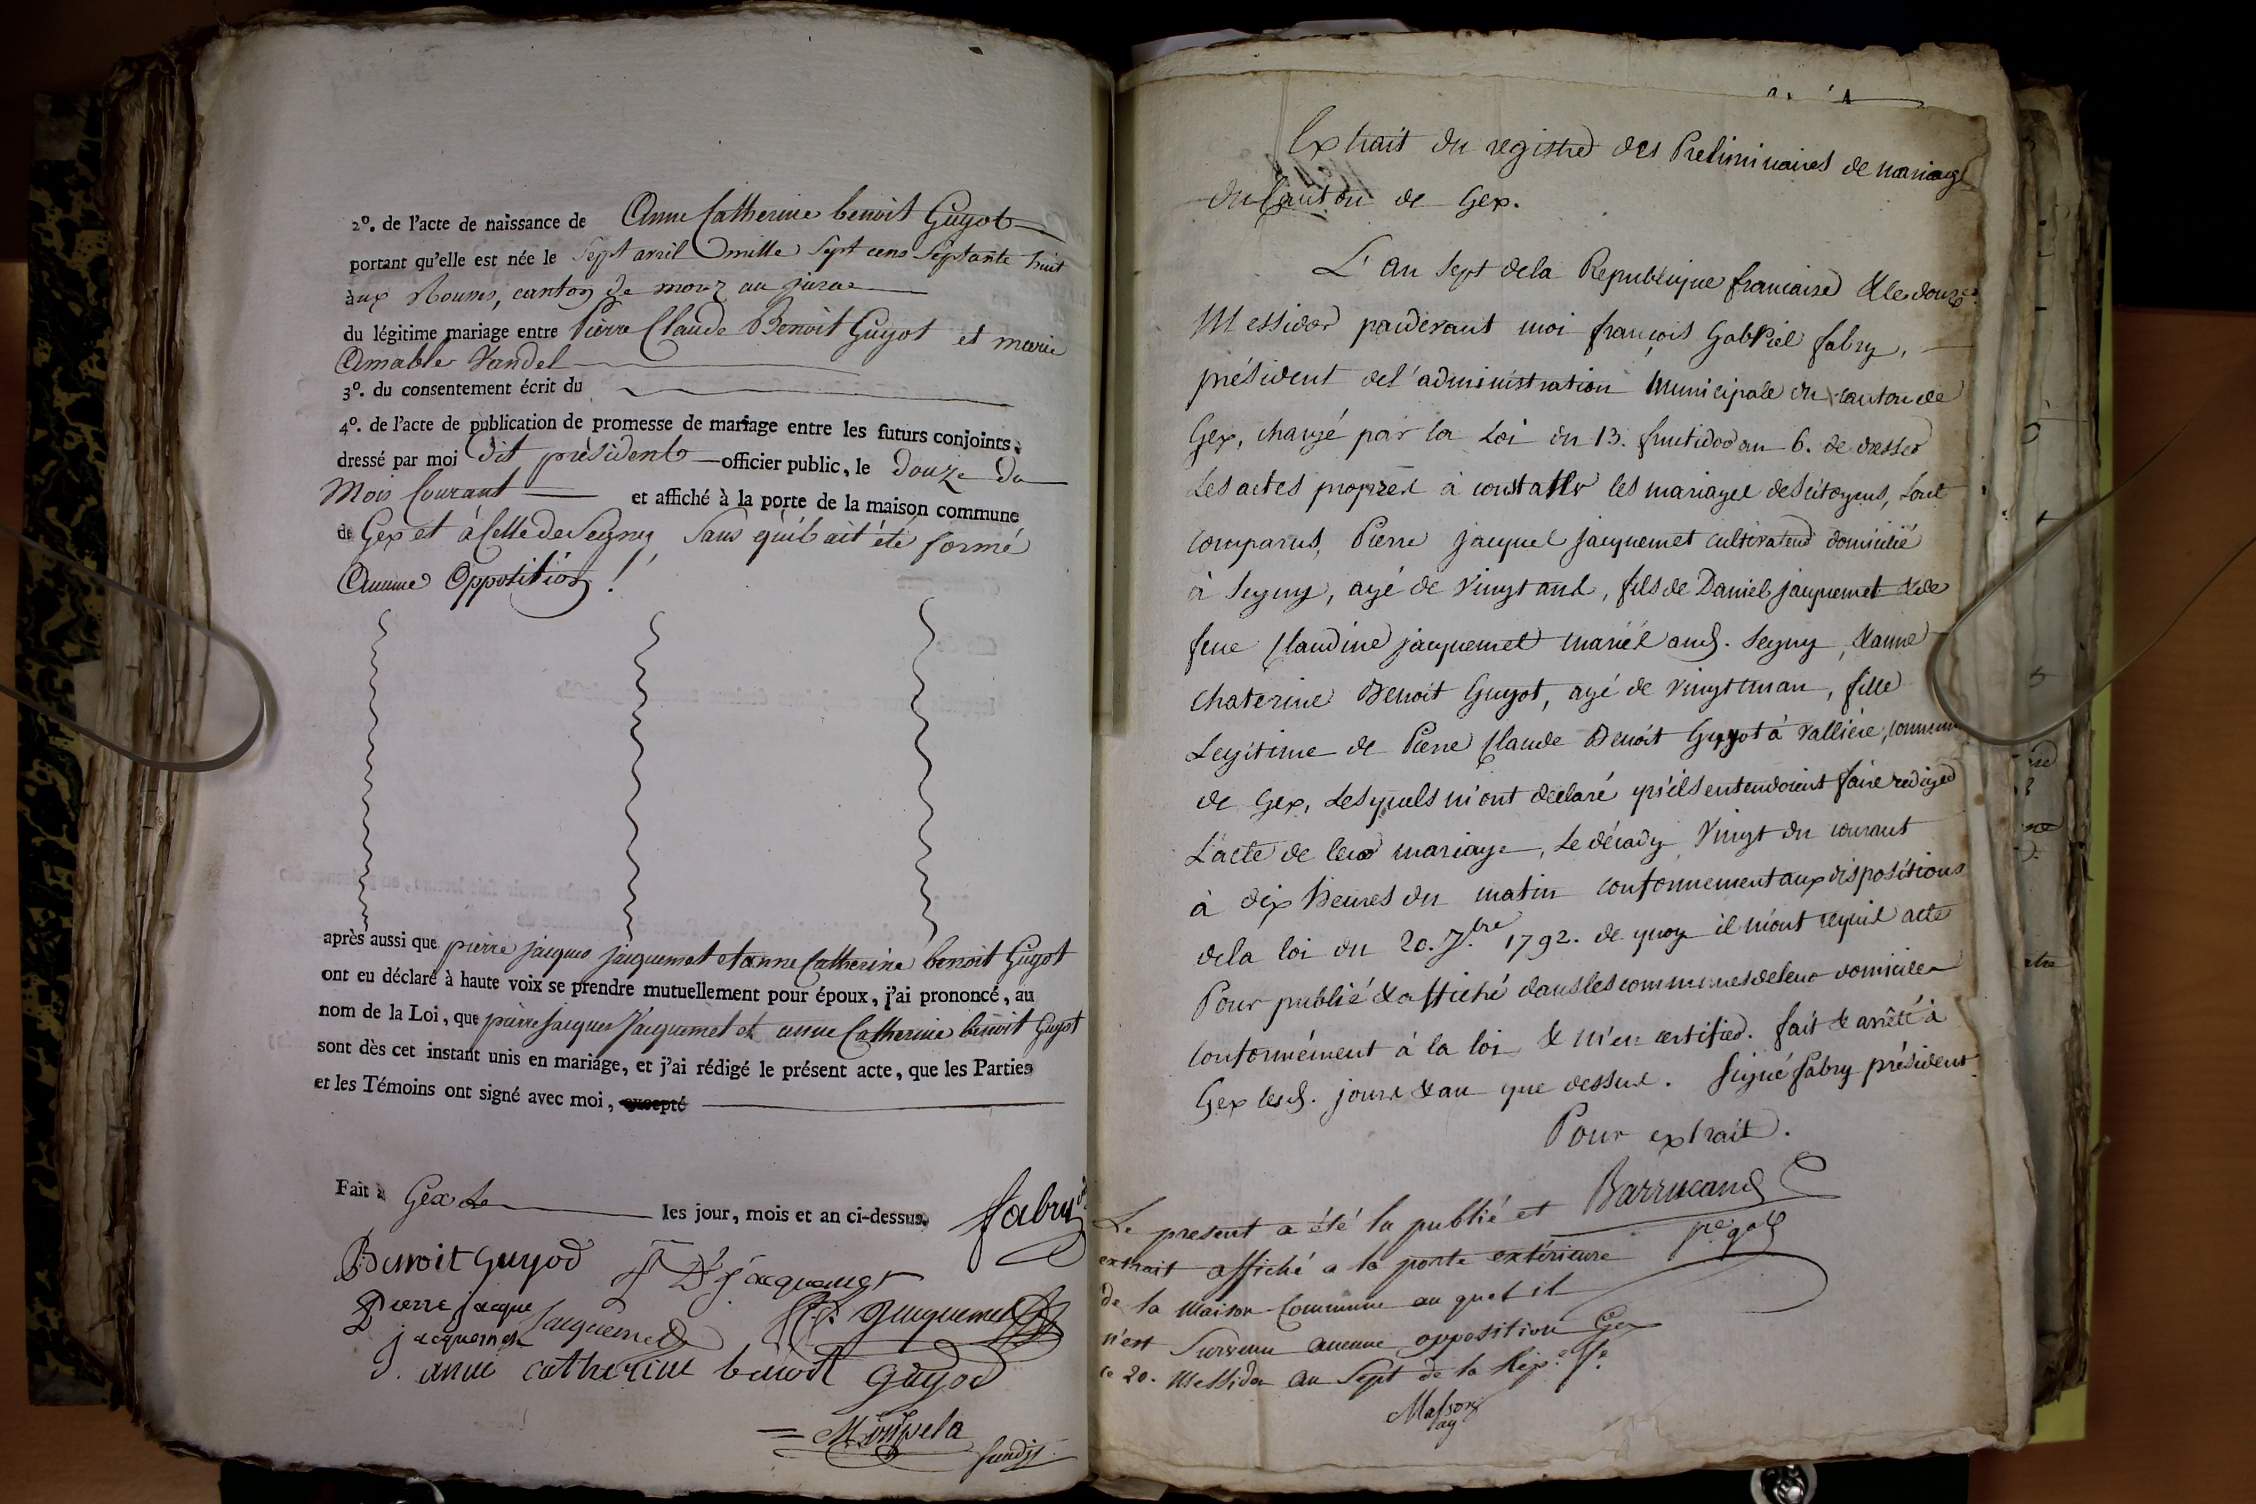 2º. de l'acte de naissance de Anne Catherine benoit Guyot
portant qu'elle est née le sept avril mille sept cens septante huit
aux Rousses, canton de morez au jura
du légitime mariage entre Pierre Claude Benoit Guyot et marie
Amable Vandel
3º. du consentement écrit du
4º. de l'acte de publication de promesse de mariage entre les futurs conjoints,
dressé par moi dit président officier public, le douze du
Mois Courant et affiché à la porte de la maison commune
de Gex et à Celle de Segny, sans qu'il ait été formé
Aucune Opposition !
après aussi que pierre jacques jacquemet et anne Catherine benoit Guyot
ont eu déclaré à haute voix se prendre mutuellement pour époux, j'ai prononcé, au
nom de la Loi, que pierre jacques Jacquemet et anne Catherine benoit Guyot
sont dès cet instant unis en mariage, et j'ai rédigé le présent acte, que les Parties
et les Témoins ont signé avec moi, excepté
Fait à Gex le les jour, mois et an ci-dessus.
fabry
Benoit Guyod
Jacquemet
Pierre jacque
jacquemet
Jacquemet
Jacquemet
anne catherine benoit guyod
Extrait du registre des Preliminaires de mariage
du Canton de Gex.
L'an sept de la Republique francaise & le douze
Messidor pardevant moi françois Gabriel fabry,
président del'administration Municipale du canton de
Gex, chargé par la Loi du 13. fructidor an 6. de dresser
Les actes propres à constater les mariages des citoyens, sont
comparus, Pierre jacques jacquemet cultivateur domicilié
à Segny, agé de vingt ans, fils de Daniel jacquemet & de
feue Claudine jacquemet mariés aud. Segny, & anne
Chaterine Benoit Guyot, agé de vingt un an, fille
Legitime de Pierre Claude Benoit Guyot à Vallière, commune
de Gex, Lesquels m'ont déclaré qu'ils entendoient faire rediger
L'acte de leur mariage, Le décady vingt du courant
à dix heures du matin conformement aux dispositions
dela loi du 20. 7.bre 1792. de quoy il m'ont requis acte
Pour publié & affiché dans les communes de leur domicile
conformément à la loi & m'en certifier. fait & arrêté à
Gex lesd. jours & an que dessus. Signé fabry président
Pour extrait.
Barrucand
Le present a été lu publié et
extrait affiché a la porte extérieure
de la Maison Commune au quel il
n'est survenu aucune opposition Gex
ce 20. Messidor an Sept de la Rép.e f.e
Masson
ag